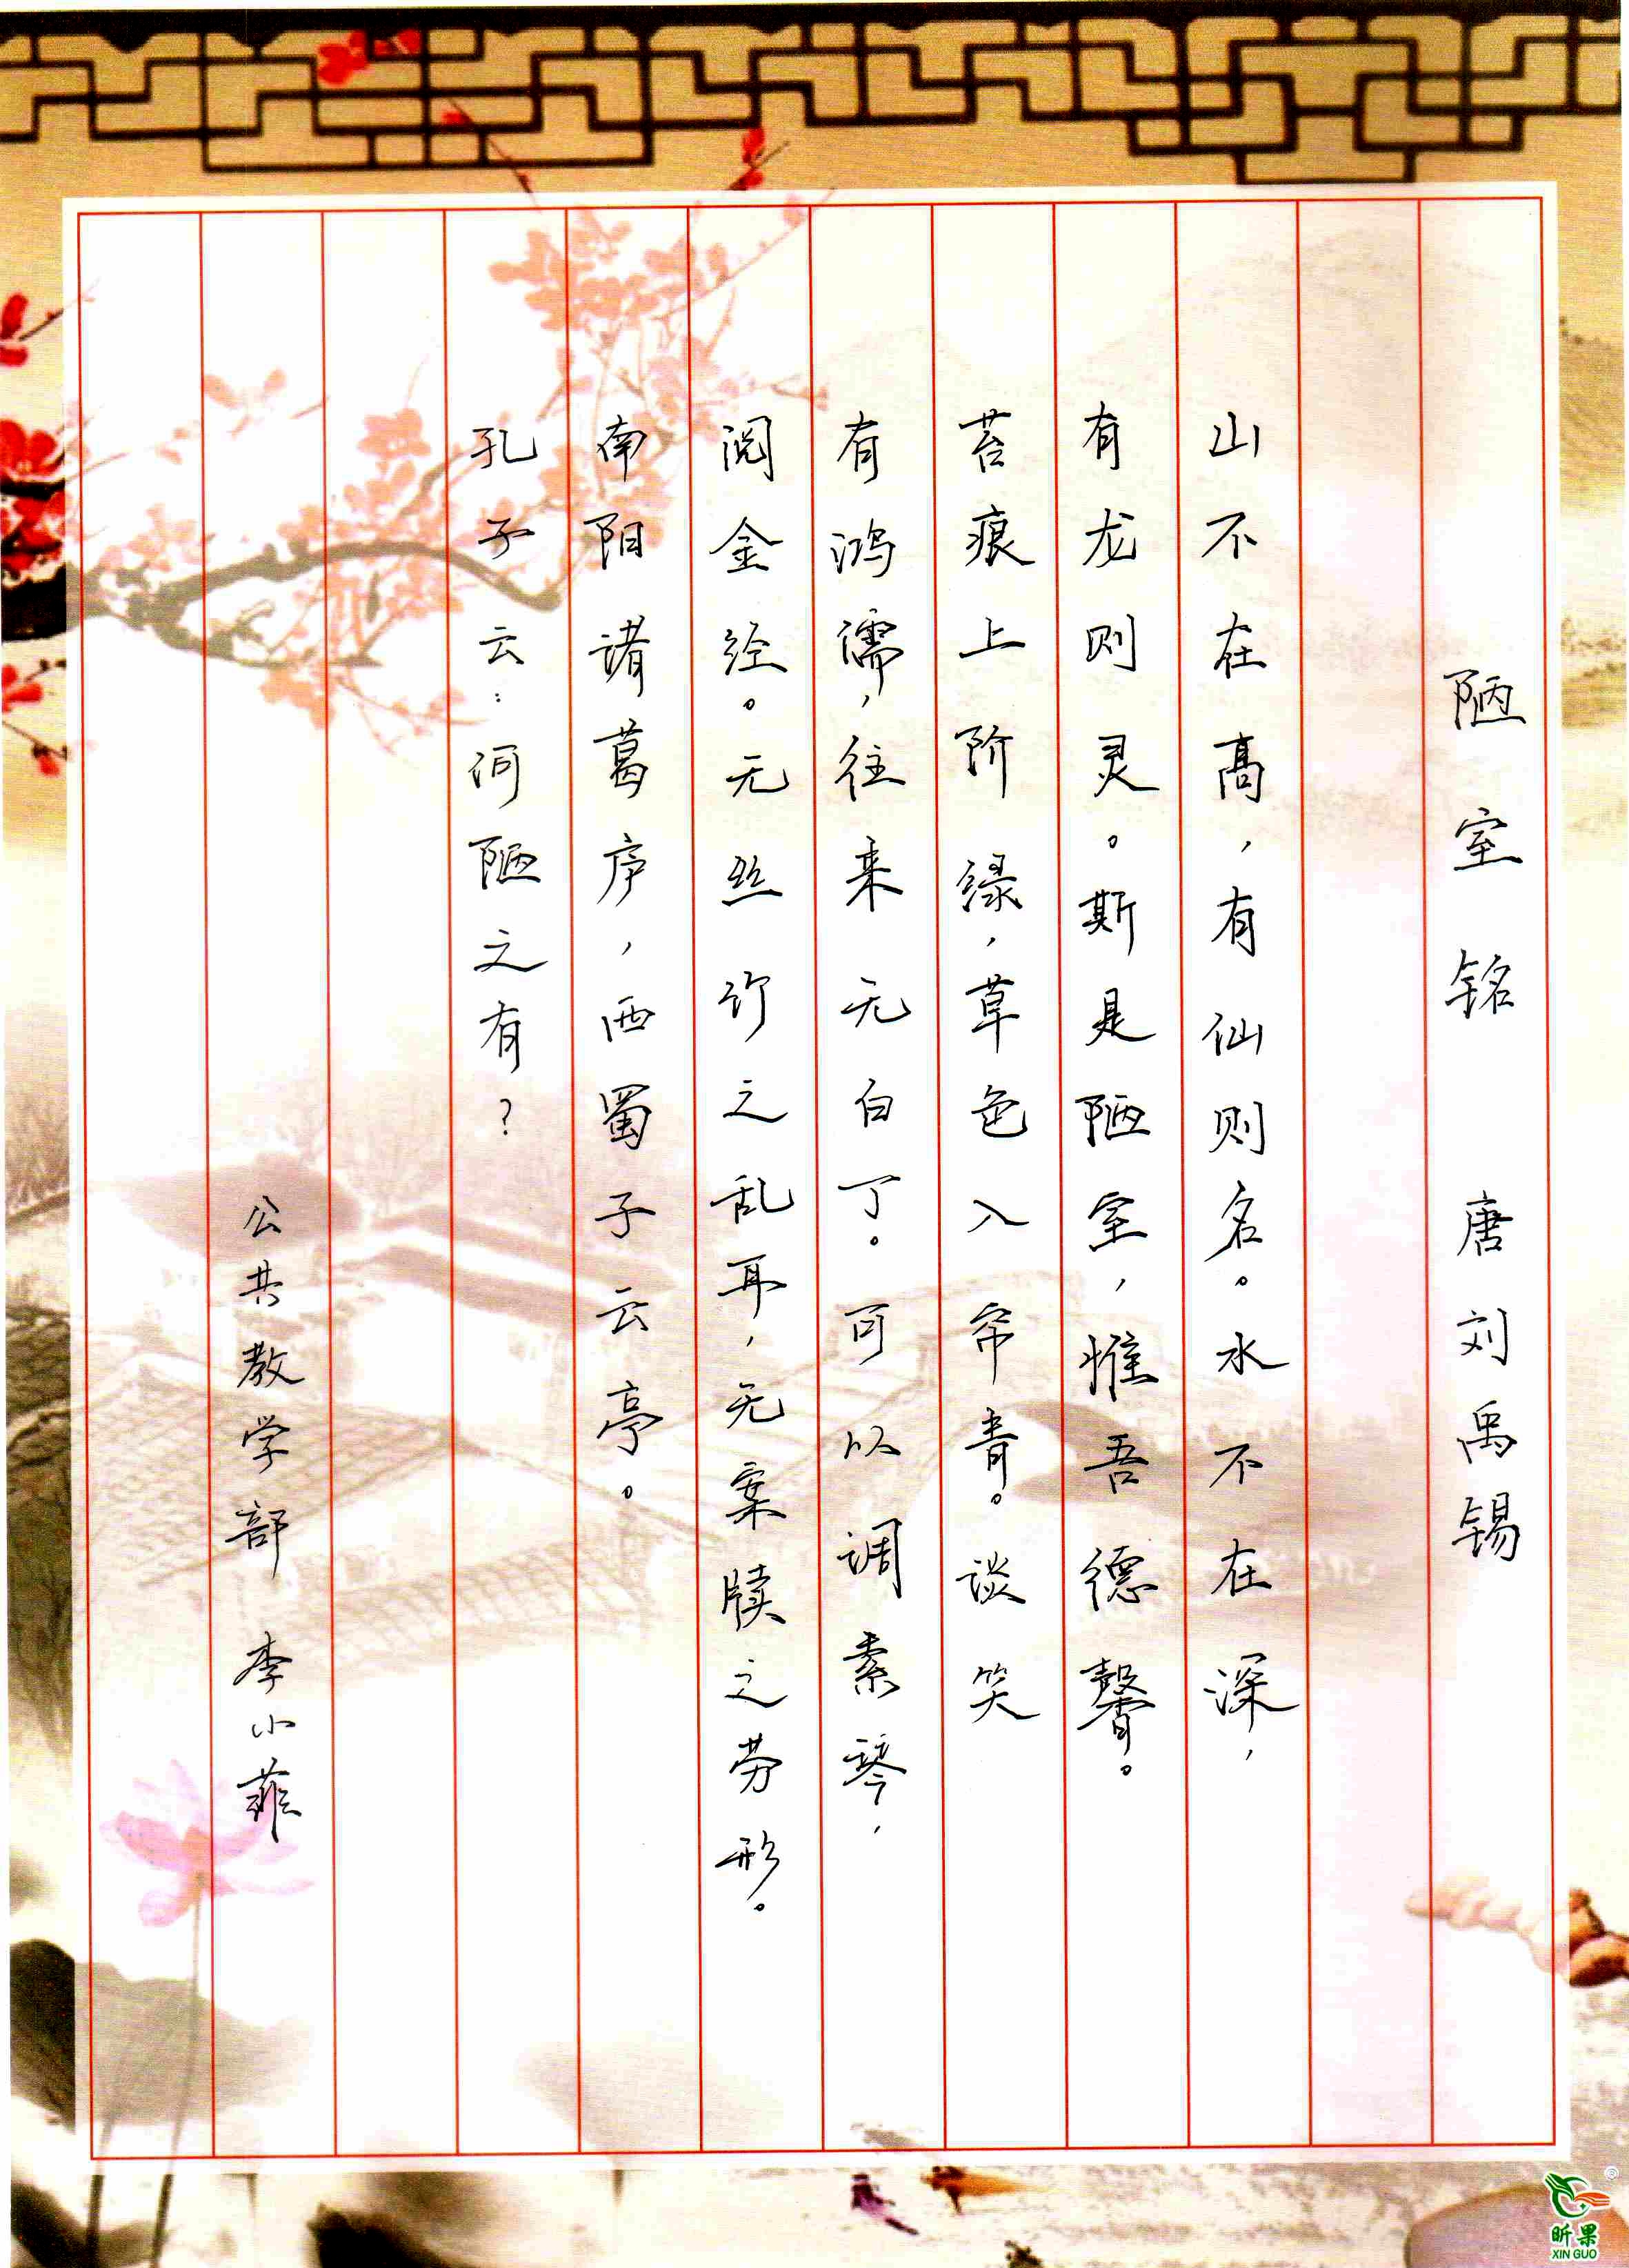 陋室铭 唐刘禹锡
山不在高，有仙则名。水不在深，
有龙则灵。斯是陋室，惟吾德馨。
苔痕上阶绿，草色入帘青。谈笑
有鸿儒，往来无白丁。可以调素琴，
阅金经。无丝竹之乱耳，无案牍之劳形。
南阳诸葛庐，西蜀子云亭。
孔子云：何陋之有？
公共教学部 李小菲
昕果
XIN GUO